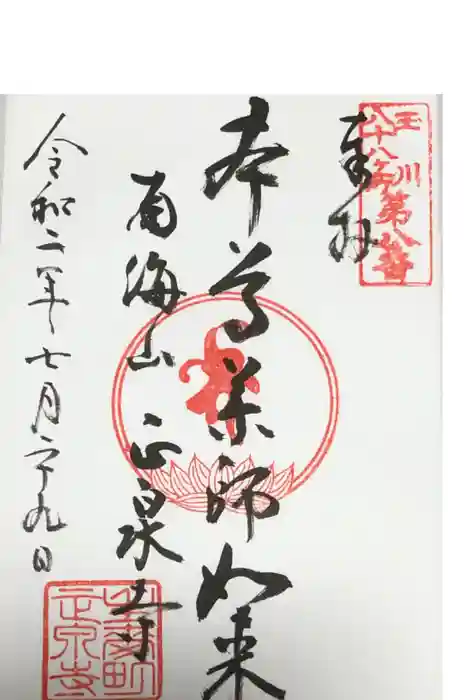 玉川
八十八ヶ所第八番
奉拝
本尊薬師如来
南海山正泉寺
令和二年七月二十九日